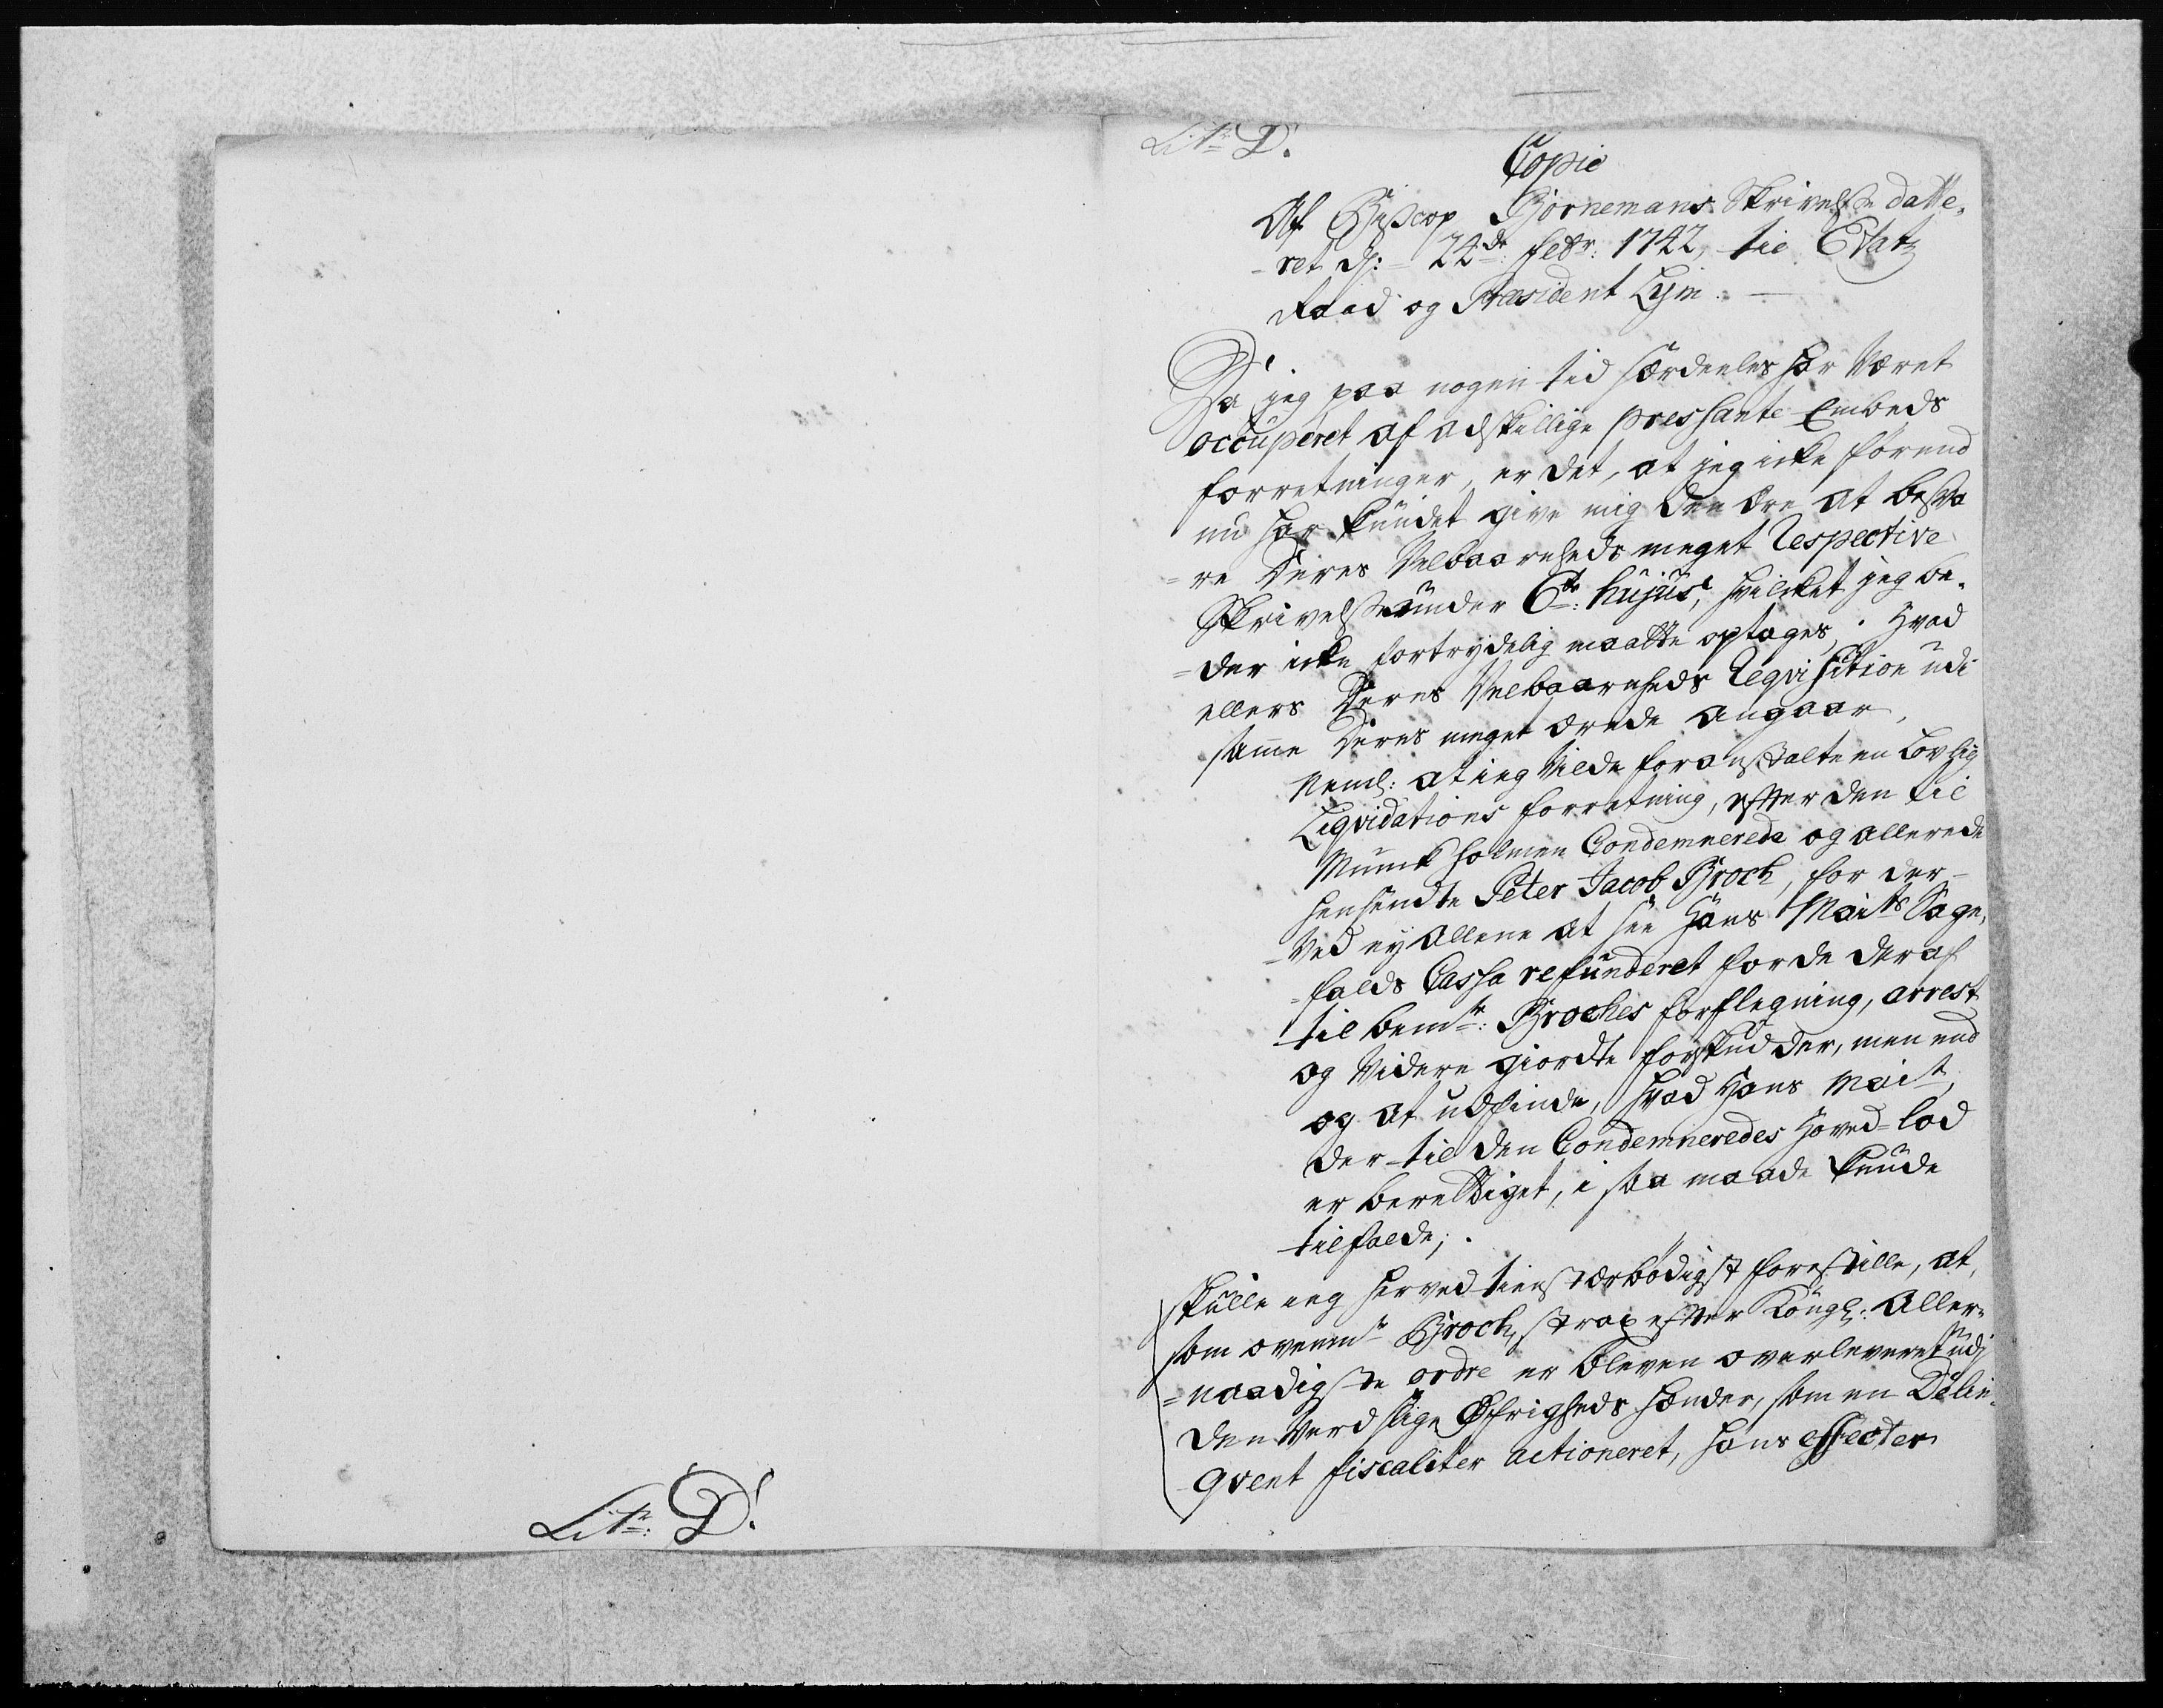 Litr: D!
Litr D.
Copie
Af Biscop Bjornemans Skrivelse datte-
ret d: 22de Febr: 1742, til Etatz
Raad og Præsident Lym.
Da jeg paa nogen tid særdeeles har været
occuperet af adskillige pressante Embeds
forretninger, er det, at jeg icke förend
nu har kundet give mig den Ære at besva
= re Deres Velbaarenheds meget respective
Skrivelse under 6te: hujus, hvilcket jeg be-
= der icke fortrydelig maatte optages; Hvad
ellers Deres Velbaarenheds Reqvisition udi
samme Deres meget ærede angaar,
Neml: at ieg vilde foranstalte en lovlig
Liqvidations forretning, efter den til
Munckholmen Condemnerede og allerede
hensendte Peter Jacob Broch, for der-
ved ey allene at see Hans Maits Sage-
falds Cassa refunderet for de deraf
til bemte: Broches forflegning, arrest
og videre giordte forskudder, men end
og at udfinde, hvad Hans Mait,
der til den Condemneredes Hoved-lod
er berettiget, i saa maade kunde
tilfalde;
skulle ieg herved tienstærbödigst forestille, at,
som ovenmte Broch, strax efter Kongl: Aller-
= naadigste ordre er bleven overleveret udj
den Verdslige Øfrigheds hænder, som en Delin-
qvent fiscaliter actioneret, hans effecter